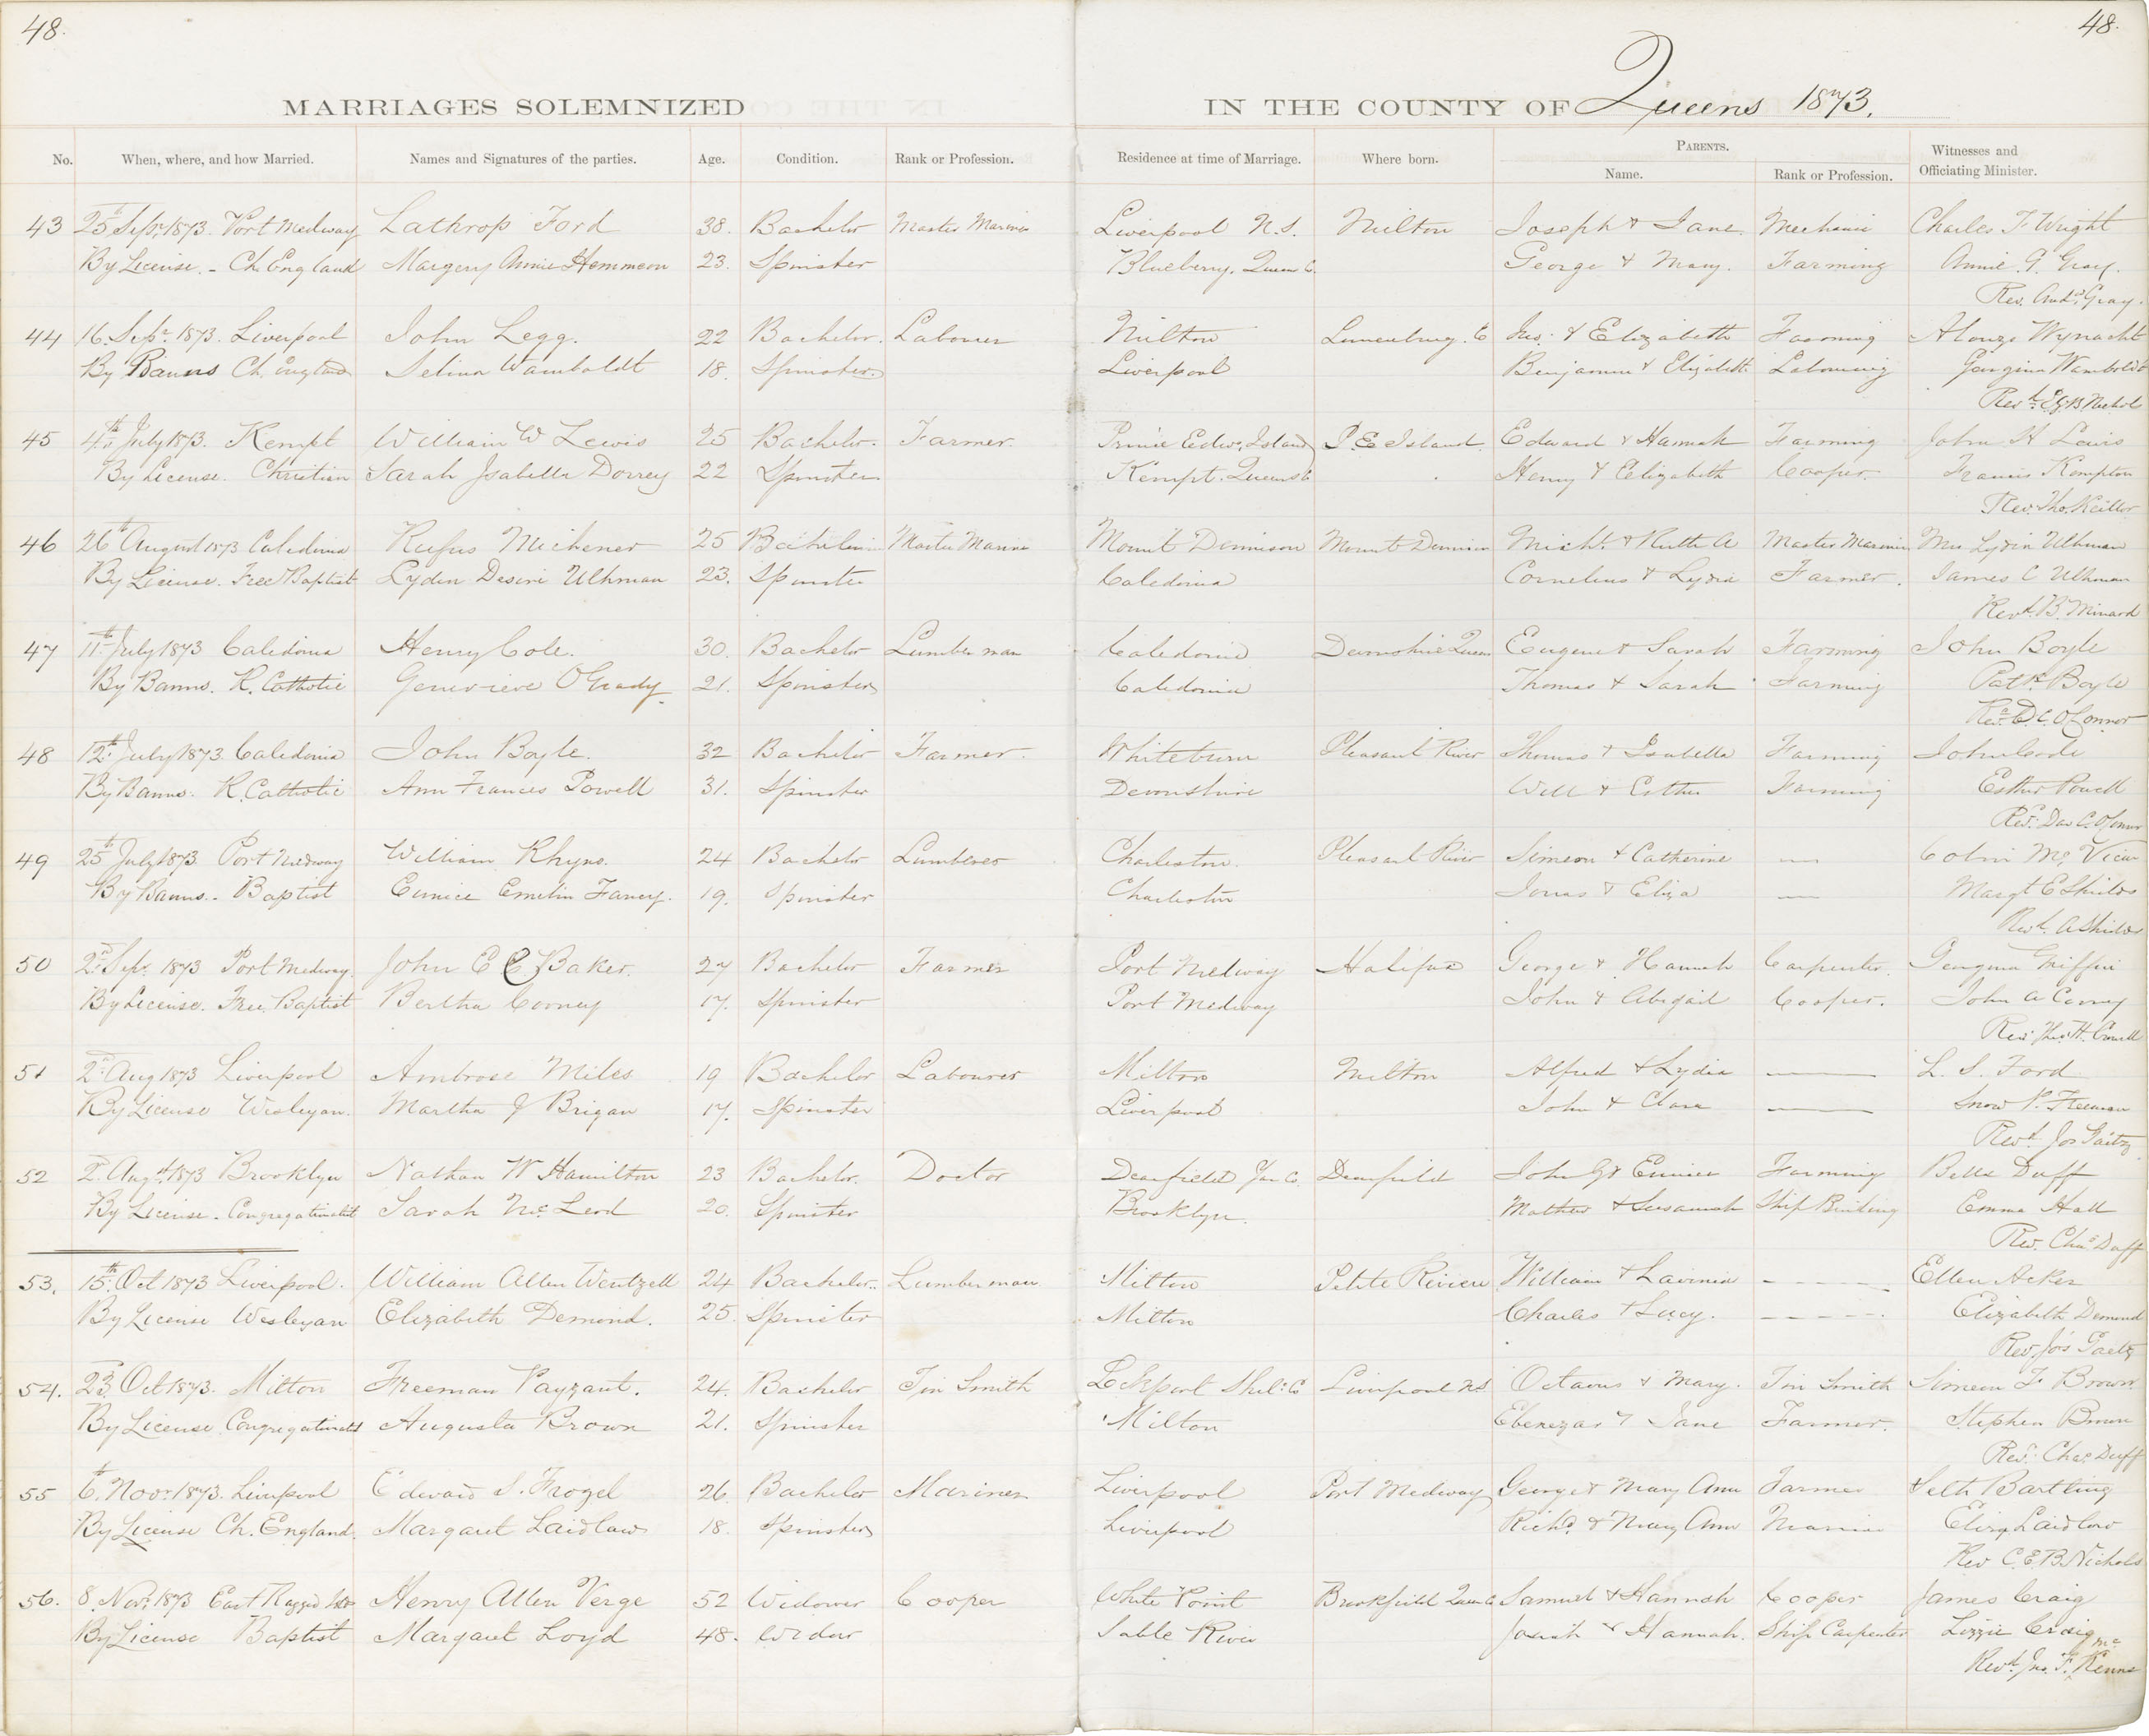 48.
48.
MARRIAGES SOLEMNIZED
IN THE COUNTY OF Queens 1873.
No. When, where, and how Married. Names and Signatures of the parties. Age. Condition. Rank or Profession. Residence at time of Marriage. Where born. PARENTS. Name. Rank or Profession. Witnesses and Officiating Minister.
43 25th Sepr. 1873. Port Medway Lathrop Ford 38. Bachelor Master Mariner Liverpool N.S. Milton Joseph & Jane. Mechanic Charles F Wright
By License. - Ch. England Margery Annie Hemmeon 23. Spinster Blueberry, Queen C. George & Mary. Farming Annie G. Gray.
Rev. Andw. Gray.
44 16. Sepr. 1873. Liverpool John Legg. 22 Bachelor. Labourer Milton Lunenburg. C Jno. & Elizabeth Farming Alonzo Wynacht
By Banns Ch. England Selina Wamboldt 18. Spinster. Liverpool Benjamin & Elizabeth Labouring Georgina Wamboldt
Revd. Nichol
45 4th July 1873. Kempt William W Lewis 25 Bachelor. Farmer. Prince Edwd. Island P. E Island. Edward & Hannah Farming John H Lewis
By License. Christian Sarah Isabella Dorrey 22 Spinster Kempt. Queens C Henry & Elizabeth Cooper. Francis Kempton
Rev. Tho. Keillor
46 26th August 1873 Caledonia Rufus Michener 25 Bachelor Master Marine Mount Dennison Mount Dennison Michl. & Ruth A Master Mariner Mrs Lydia Ulhman
By License. Free Baptist Lydia Desire Ulhman 23. Spinster Caledonia Cornelius & Lydia Farmer. James C Ulhman
Revd. B Minard
47 11th July 1873 Caledonia Henry Cole. 30. Bachelor Lumberman Caledonia Devonshire Queen Eugene & Sarah Farming John Boyle
By Banns. R. Catholic Genevieve O'Grady. 21. Spinster Caledonia Thomas & Sarah Farming Patk. Boyle
Rev. D. C. O'Connor
48 12th July 1873 Caledonia John Boyle. 32 Bachelor Farmer. Whiteburn Pleasant River Thomas & Isabella Farming John Cole
By Banns. R. Catholic Ann Frances Powell 31. Spinster Devonshire Will & Esther Farming Esther Powell
Rev. Dav C. O'Connor
49 25th July 1873 Port Medway William Rhyno. 24 Bachelor Lumberer Charleston. Pleasant River Simeon & Catherine — Colin Mc. Vicar
By Banns. Baptist Eunice Emelin Fancy. 19. Spinster Charleston Jonas & Eliza — Margt E Shields
Revd. A Shields
50 2nd Sepr. 1873 Port Medway. John E C Baker. 27 Bachelor Farmer Port Medway Halifax George & Hannah Carpenter. Georgina Griffin
By License. Free Baptist Bertha Cooney 17. Spinster Port Medway John & Abigail Cooper. John A Cooney
Rev. Tho. H. Crowell
51 2nd Aug 1873 Liverpool Ambrose Miles 19 Bachelor Labourer Milton Milton Alfred & Lydia — L. S. Ford
By License Wesleyan. Martha J Brigan 17. Spinster Liverpool John & Clara — Snow P. Freeman
Revd. Jos Gaetz
52 2d. Augt. 1873 Brooklyn Nathan W Hamilton 23 Bachelor. Doctor Dearfield Yar C. Dearfield John G & Eunice Farming Bella Duff
By License. Congregationalist Sarah Mc. Leod 20. Spinster Brooklyn. Mathew & Susannah Ship Building Emma Hall
Rev. Chas Duff
53. 15th. Oct 1873 Liverpool. William Allen Wentzell 24 Bachelor. Lumberman Milton Petite Riviere William & Lavinia - - - - Ellen Acker
By License Wesleyan Elizabeth Demond. 25. Spinster Milton Charles & Lucy. - - - - Elizabeth Demond
Rev. Jos Gaetz
54. 23d Oct 1873. Milton Freeman Payzant. 24. Bachelor Tin Smith Lockport Shel. C Liverpool NS Octavus & Mary. Tin Smith Simeon F Brown.
By License Congregationalist Augusta Brown 21. Spinster Milton Ebenezar & Jane Farmer. Stephen Brown
Rev. Chas. Duff
55 6th. Novr. 1873. Liverpool Edward S. Frogel 26. Bachelor Mariner Liverpool Port Medway George & Mary Ann Farmer Seth Bartling
By License Ch. England. Margaret Laidlaw 18. Spinster Liverpool Richd. & Mary Ann Marine Eliza Laidlaw
Rev C. E. B. Nichols
56. 8. Novr. 1873 East Ragged Isd Henry Allen Verge 52 Widower Cooper White Point Brookfield Queen C Samuel & Hannah Cooper James Craig
By License Baptist Margaret Loyd 48. Widow Sable River Josiah & Hannah. Ship Carpenter Lizzie Craig
Revd. Jno. McKenna